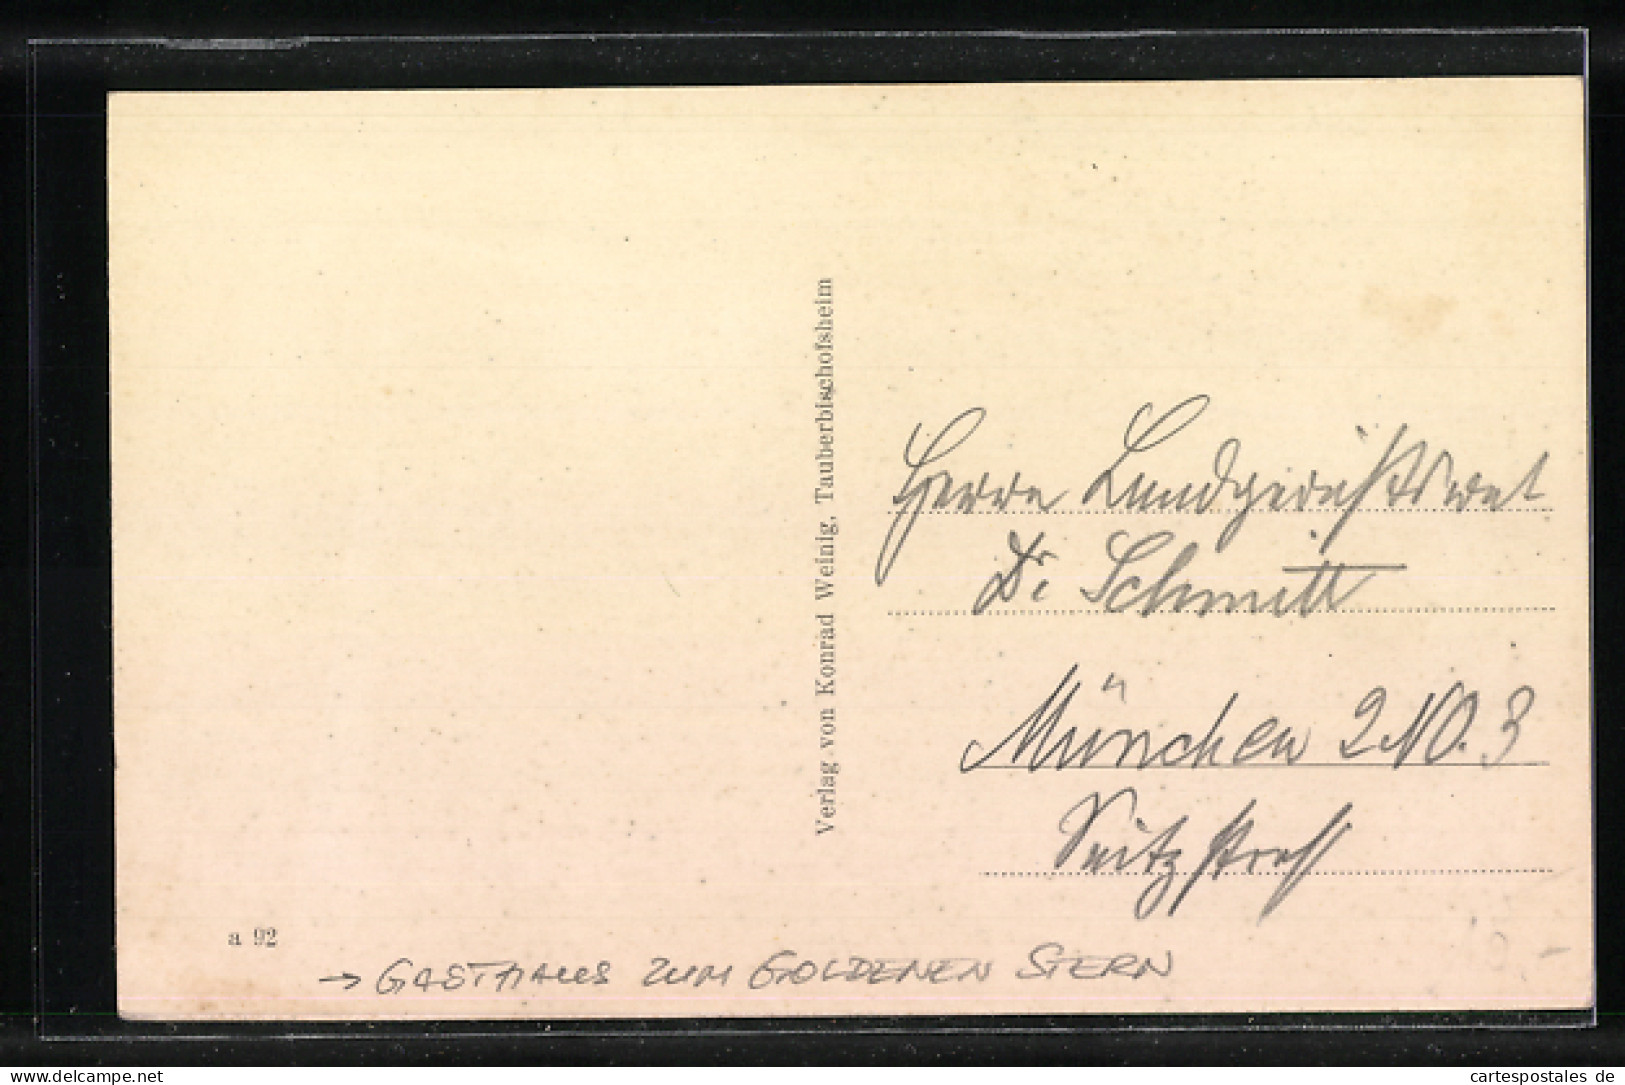 Verlag von Konrad Weinig, Tauberbischofsheim
Herrn Landgerichtsrat
Dr. Schmitt
München 2 NO. 3
Seitzstraß
a 92
→ GASTHAUS ZUM GOLDENEN STERN
www.delcampe.net
cartespostales de